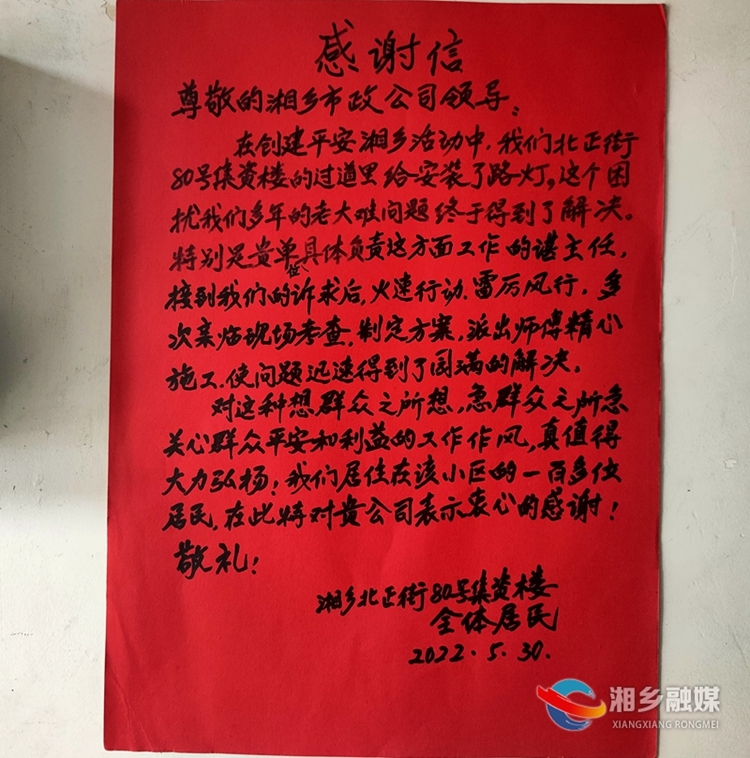 感谢信
尊敬的湘乡市政公司领导：
在创建平安湘乡活动中，我们北正街
80号集资楼的过道里给安装了路灯，这个困
扰我们多年的老大难问题终于得到了解决。
特别是贵单位具体负责这方面工作的谌主任，
接到我们的诉求后，火速行动，雷厉风行，多
次亲临现场考查，制定方案，派出师傅精心
施工，使问题迅速得到了圆满的解决。
对这种想群众之所想，急群众之所急
关心群众平安和利益的工作作风，真值得
大力弘扬！我们居住在该小区的一百多位
居民，在此特对贵公司表示衷心的感谢！
敬礼！
湘乡北正街80号集资楼
全体居民
2022.5.30.
湘乡融媒
XIANGXIANG RONGMEI